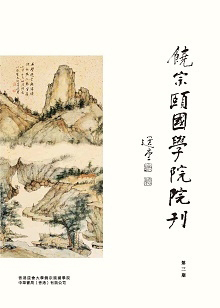 饒宗頤國學院院刊
選堂
第三期
香港浸會大學饒宗頤國學院
中華書局（香港）有限公司